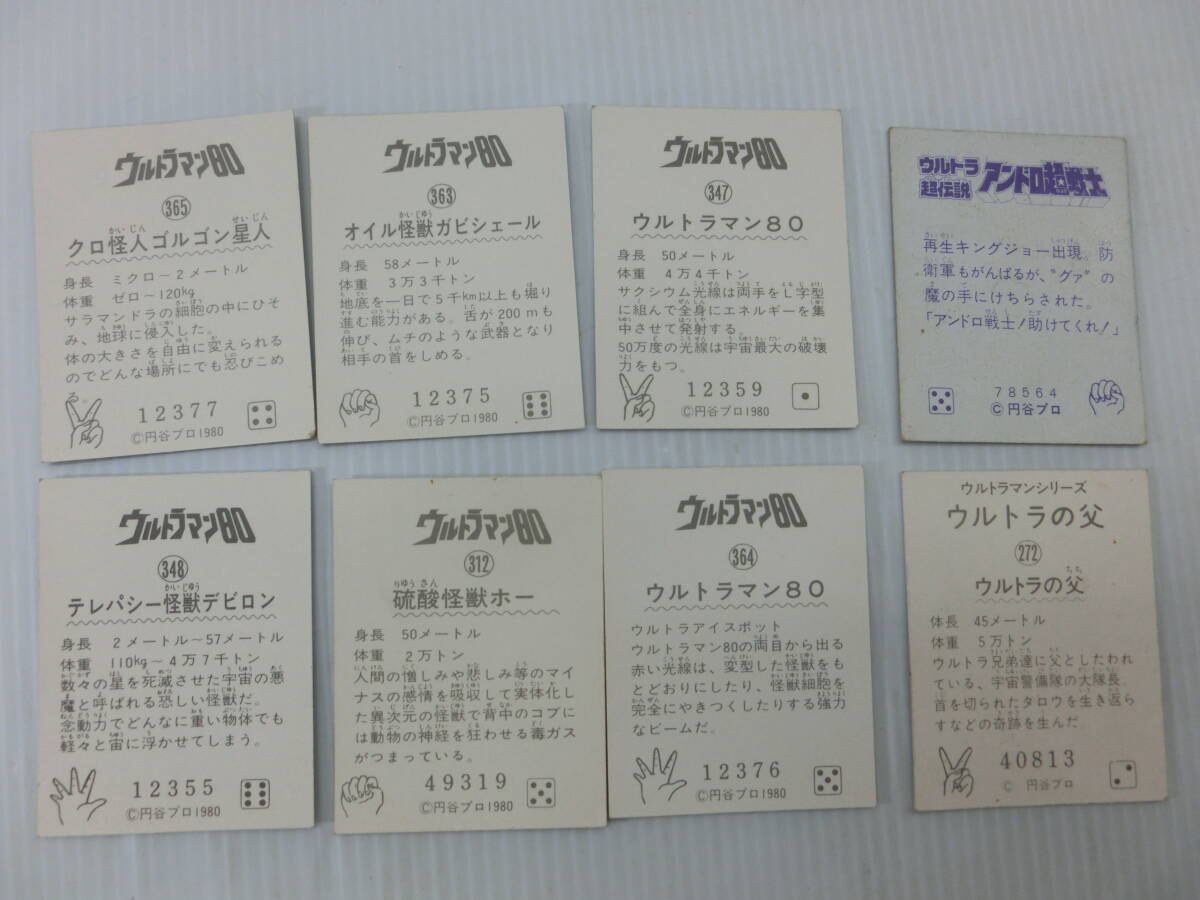 ウルトラマン80
365
クロ怪人ゴルゴン星人
身長 ミクロ〜2メートル
体重 ゼロ〜120kg
サラマンドラの細胞の中にひそ
み、地球に侵入した。
体の大きさを自由に変えられる
のでどんな場所にでも忍びこめ
る。
12377
©円谷プロ1980
ウルトラマン80
363
オイル怪獣ガビシェール
身長 58メートル
体重 3万3千トン
地底を一日で5千km以上も堀り
進む能力がある。舌が200mも
伸び、ムチのような武器となり
相手の首をしめる。
12375
©円谷プロ1980
ウルトラマン80
347
ウルトラマン80
身長 50メートル
体重 4万4千トン
サクシウム光線は両手をL字型
に組んで全身にエネルギーを集
中させて発射する。
50万度の光線は宇宙最大の破壊
力をもつ。
12359
©円谷プロ1980
ウルトラ
超伝説
アンドロ超戦士
再生キングジョー出現。防
衛軍もがんばるが、"グァ"の
魔の手にけちらされた。
「アンドロ戦士!助けてくれ!」
78564
© 円谷プロ
ウルトラマン80
348
テレパシー怪獣デビロン
身長 2メートル〜57メートル
体重 110kg〜4万7千トン
数々の星を死滅させた宇宙の悪
魔と呼ばれる恐しい怪獣だ。
念動力でどんなに重い物体でも
軽々と宙に浮かせてしまう。
12355
©円谷プロ1980
ウルトラマン80
312
硫酸怪獣ホー
身長 50メートル
体重 2万トン
人間の憎しみや悲しみ等のマイ
ナスの感情を吸収して実体化し
た異次元の怪獣で背中のコブに
は動物の神経を狂わせる毒ガス
がつまっている。
49319
©円谷プロ1980
ウルトラマン80
364
ウルトラマン80
ウルトラアイスポット
ウルトラマン80の両目から出る
赤い光線は、変型した怪獣をも
とどおりにしたり、怪獣細胞を
完全にやきつくしたりする強力
なビームだ。
12376
©円谷プロ1980
ウルトラマンシリーズ
ウルトラの父
272
ウルトラの父
体長 45メートル
体重 5万トン
ウルトラ兄弟達に父としたわれ
ている、宇宙警備隊の大隊長。
首を切られたタロウを生き返ら
すなどの奇跡を生んだ
40813
© 円谷プロ